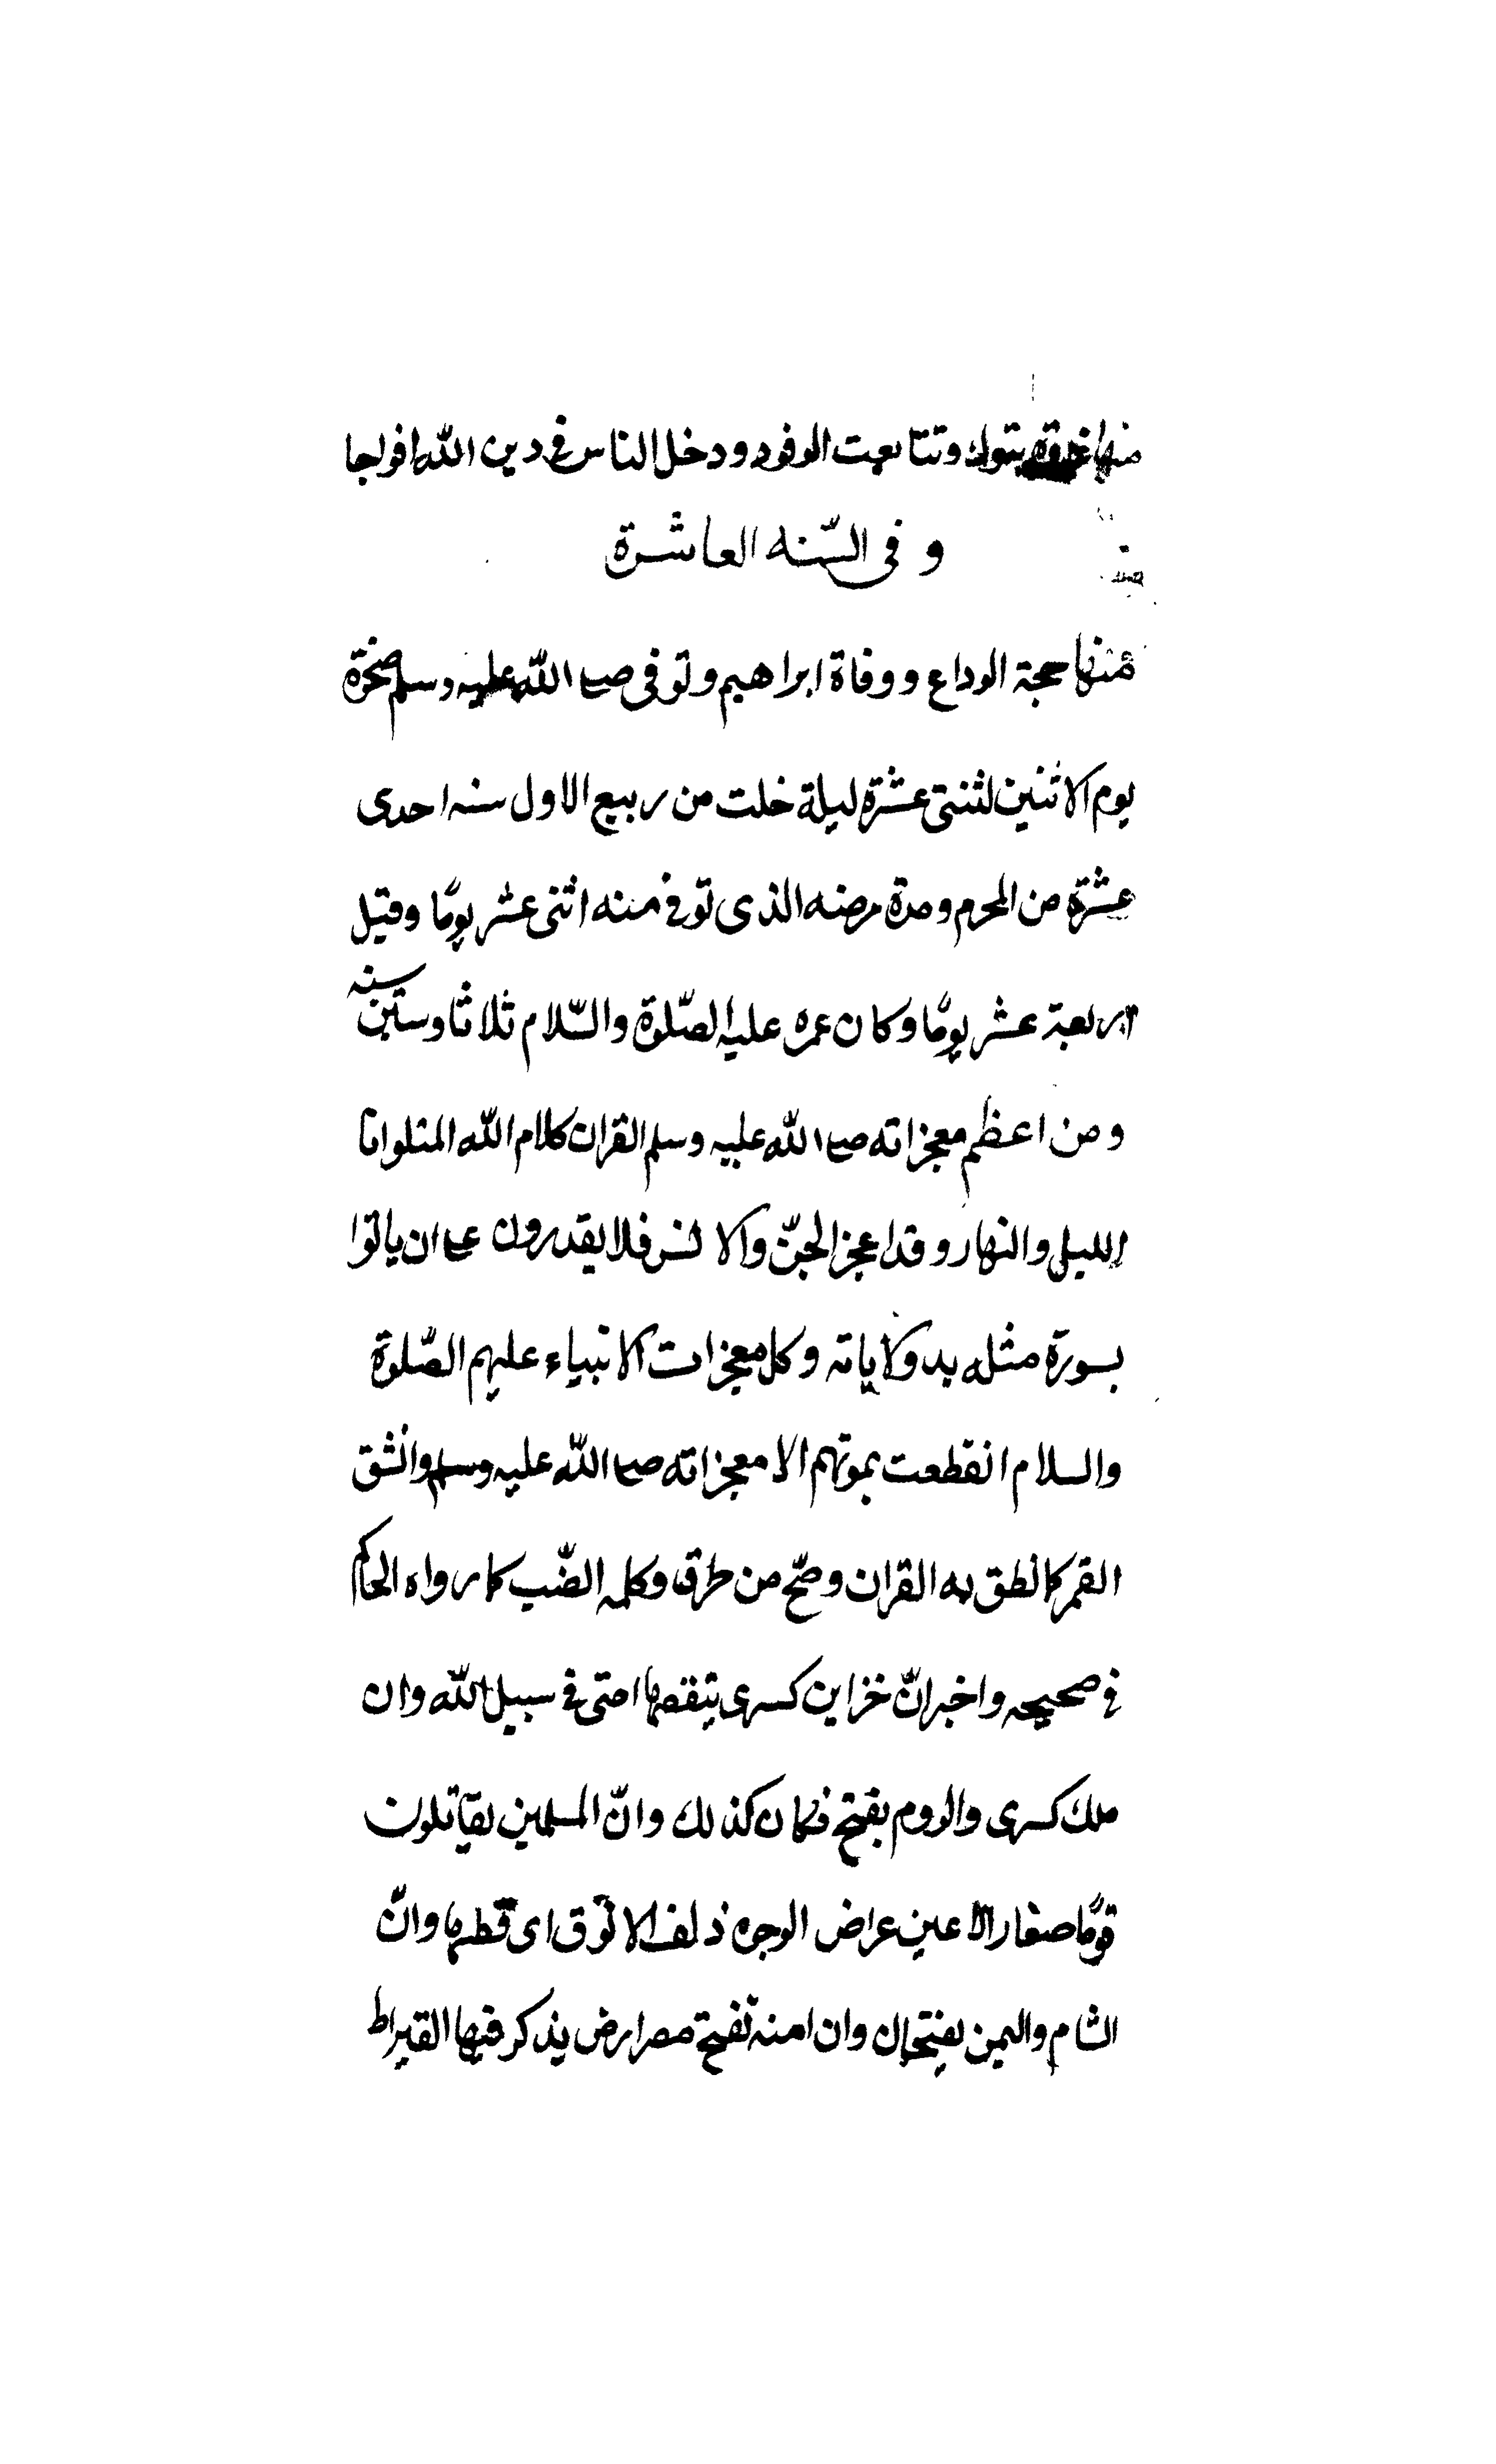 منها غزوة تبوك وتتابعت الوفود ودخل الناس في دين الله افواجا
و في السّنه العاشرة
منها حجة الوداع ووفاة ابراهيم وتوفى صلى الله عليه وسلم ضخرة
يوم الاثنين لثنتى عشرة ليلة خلت من ربيع الاول سنه احدى
عشرة من المحرم ومدة مرضه الذى توفي منه اثنى عشر يومًا وقيل
اربعة عشر يومًا وكان عمره عليه الصّلوة والسّلام ثلاثا وستين سنه
ومن اعظم معجزاته صلى الله عليه وسلم القران كلام الله المتلو انا
الليل والنهار وقد اعجز الجنّ والانس فلا يقدرون على ان ياتوا
بسورة مثله بدولاياته وكل معجزات الانبياء عليهم الصّلوة
والسلام انقطعت بموتهم الا معجزاته صلى الله عليه وسلم وانشق
القمر كما نطق به القران وصّح من طرق وكلمه الضّب كما رواه الحاكم
في صحيحه واخبر انّ خزاين كسرى ينفقها امتى في سبيل الله وان
ملك كسرى والروم يفتح فكان كذلك وانّ المسلمين يقاتلون
قومًا صغار الاعين عراض الوجوه ذلف الانوق اى قطرها وانّ
الشام واليمن يفتحان وان امته تفتح مصر ارض يذكر فيها القيراط